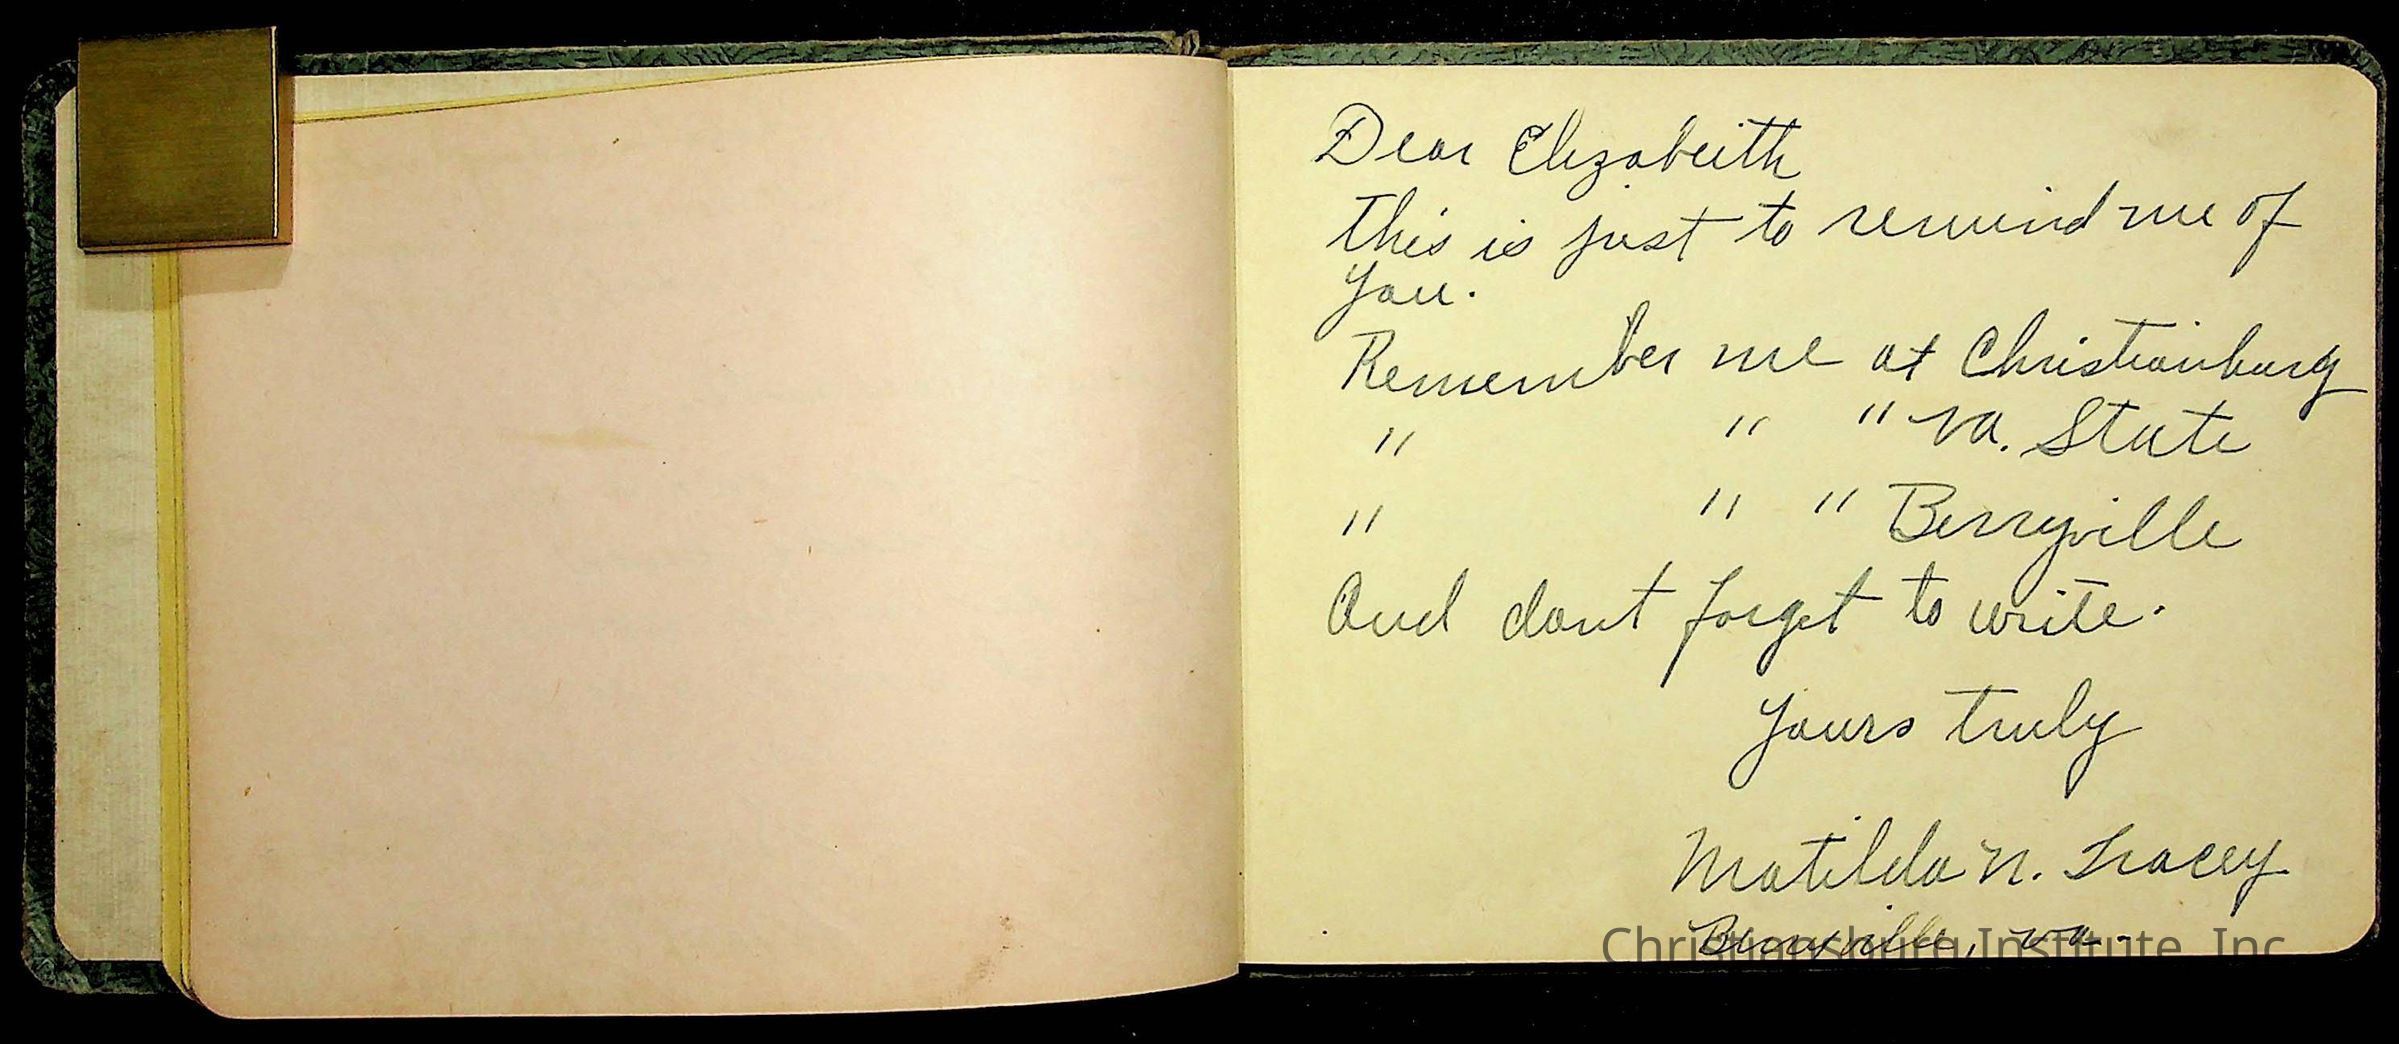 Dear Elizabeith
This is just to remind me of
you.
Remember me at Christianburg
" " " Va. State
" " " Berryville
And dont forget to write.
Yours truly
Matilda N. Tracey
Berryville, Va.
Christiansburg Institute, Inc.